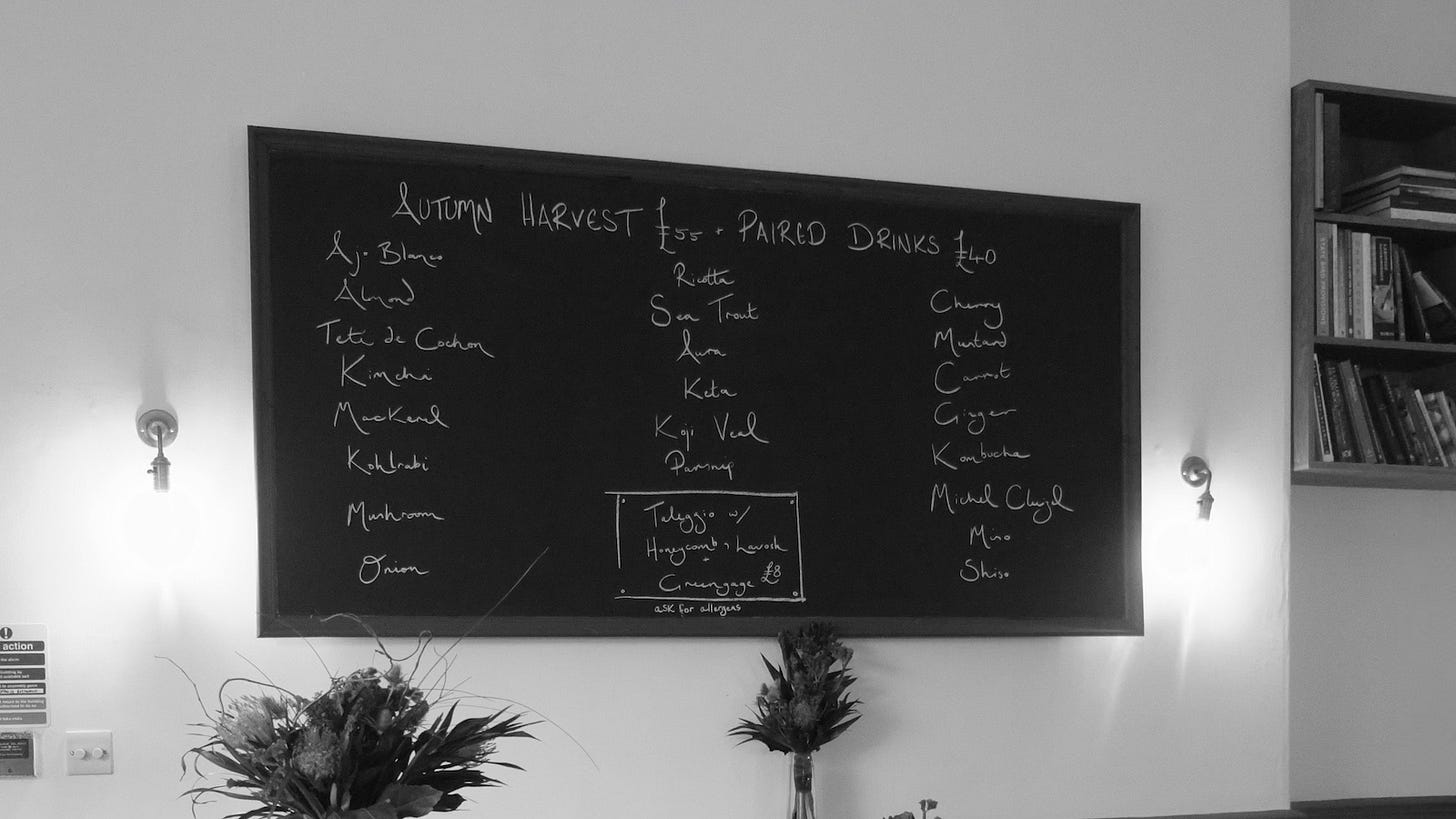 AUTUMN HARVEST £55 + PAIRED DRINKS £40
Ajo Blanco
Almond
Tete de Cochon
Kimchi
Mackerel
Kohlrabi
Mushroom
Onion
Ricotta
Sea Trout
Aura
Keta
Koji Veal
Parsnip
Taleggio w/
Honeycomb, Lavosh
+
Greengage £8
ask for allergens
Cherry
Mustard
Carrot
Ginger
Kombucha
Michel Cluizel
Miso
Shiso
action